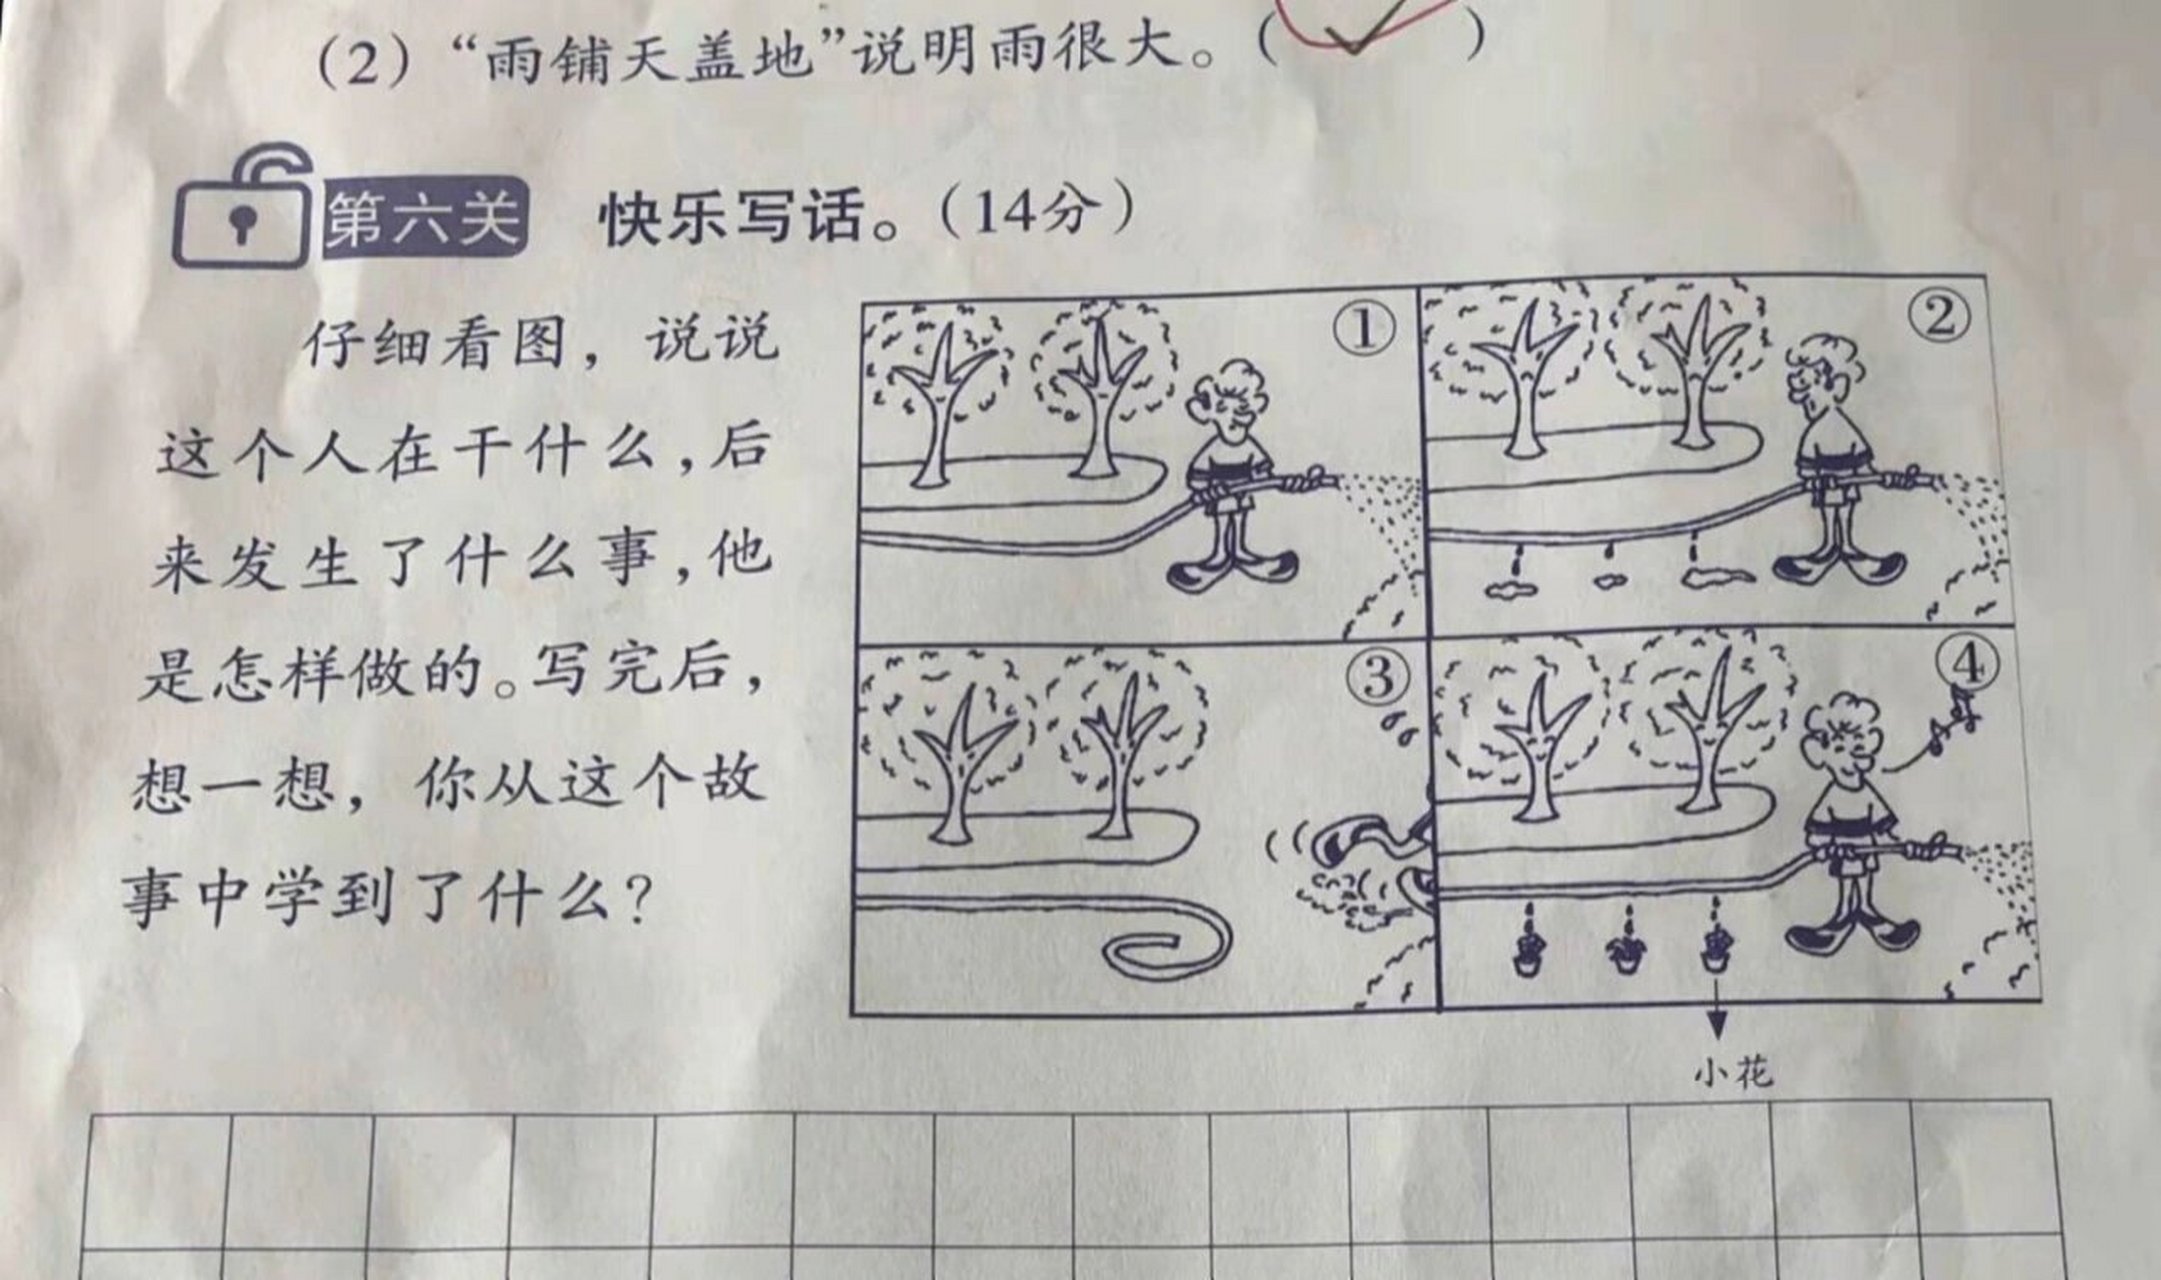 (2)“雨铺天盖地”说明雨很大。( ✓ )
第六关 快乐写话。(14分)
仔细看图，说说
这个人在干什么,后
来发生了什么事,他
是怎样做的。写完后，
想一想，你从这个故
事中学到了什么？
①
②
③
④
小花